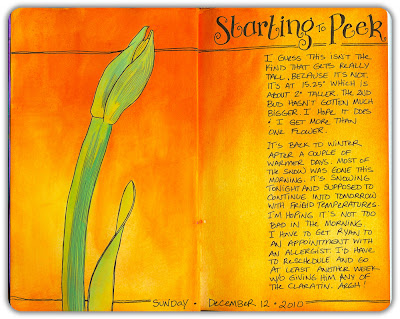 Starting to Peek
I GUESS THIS ISN'T THE
KIND THAT GETS REALLY
TALL, BECAUSE IT'S NOT.
IT'S AT 15.25" WHICH IS
ABOUT 2" TALLER. THE 2ND
BUD HASN'T GOTTEN MUCH
BIGGER. I HOPE IT DOES
& I GET MORE THAN
ONE FLOWER.
IT'S BACK TO WINTER
AFTER A COUPLE OF
WARMER DAYS. MOST OF
THE SNOW WAS GONE THIS
MORNING. IT'S SNOWING
TONIGHT AND SUPPOSED TO
CONTINUE INTO TOMORROW
WITH FRIGID TEMPERATURES.
I'M HOPING IT'S NOT TOO
BAD IN THE MORNING.
I HAVE TO GET RYAN TO
AN APPOINTMENT WITH
AN ALLERGIST. I'D HAVE
TO RESCHEDULE AND GO
AT LEAST ANOTHER WEEK
W/O GIVING HIM ANY OF
THE CLARATIN. ARGH!
SUNDAY • DECEMBER 12 • 2010